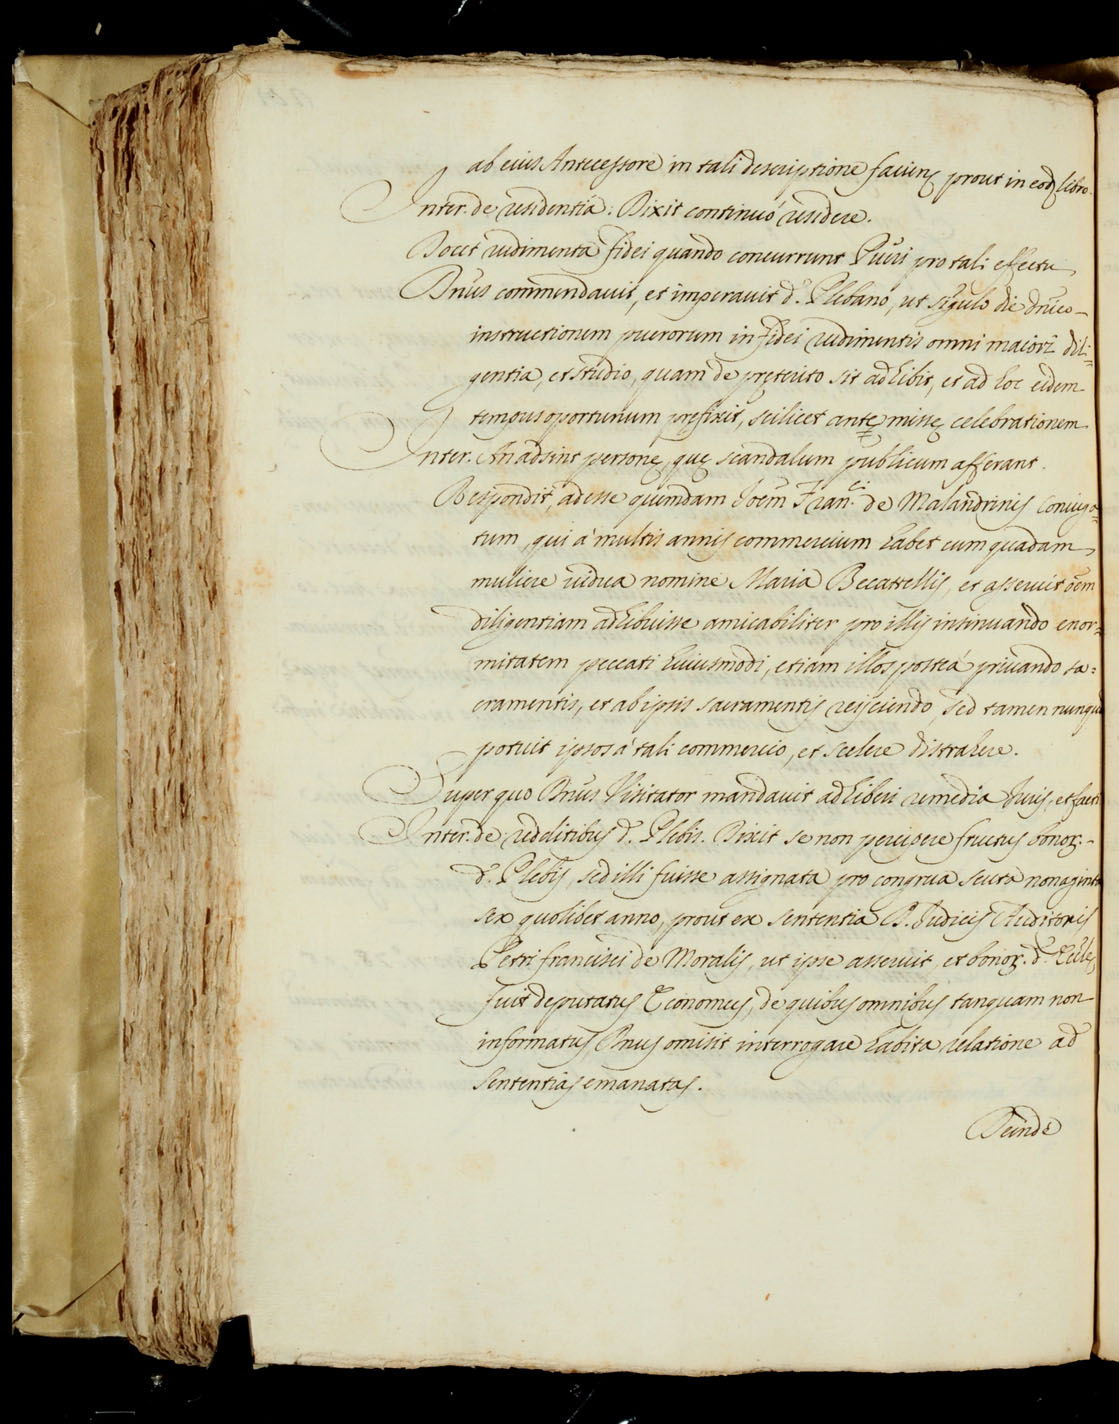 ab eius Antecessore in tali descriptione facienꝭ prout in eodꝭ libro.
Inter. de residentia: Dixit continuó residere.
Docet rudimenta fidei quando concurrunt Pueri pro tali effectu
Dnus commendauit, et imperauit d. Plebano, ut sigulo die dnico
instructionem puerorum in fidei rudimentis omni maiori dili=
gentia, et studio, quam de pręterito sit adhibit, et ad hoc eidem
tempus oportunum prefixit, scilicet ante missę celebrationem
Inter. An adsint personę, quę scandalum publicum afferant.
Respondit, adesse quemdam Ioem Fran.ci de Malandrinis coniuga=
tum, qui á multis annis commercium habet cum quadam
muliere uidua nomine Maria Becatrellis, et asseruit oem
diligentiam adhibuisse amicabiliter pro illis insinuando enor=
mitatem peccati huiusmodi, etiam illos posteá priuando sa=
cramentis, et ab ipsis sacramentis reijciendo, sed tamen nunquā
potuit ipsos á tali commercio, et scelere distrahere.
Super quo Dnus Visitator mandauit adhiberi remedia Iuris, et facti
Inter. de redditibus d. Plebis. Dixit se non percipere fructus bonoꝝ.
d. Plebis, sed illi fuisse assignata pro congrua scuta nonaginta
sex quolibet anno, prout ex sententia D. Iudicis Auditoris
Petri francisci de Moralis, ut ipse asseruit, et bonoꝝ. d. Eccleę
fuit deputatus Economus, de quibus omnibus tanquam non
informatus Dnus omisit interrogare habita relatione ad
sententias emanatas.
Deinde